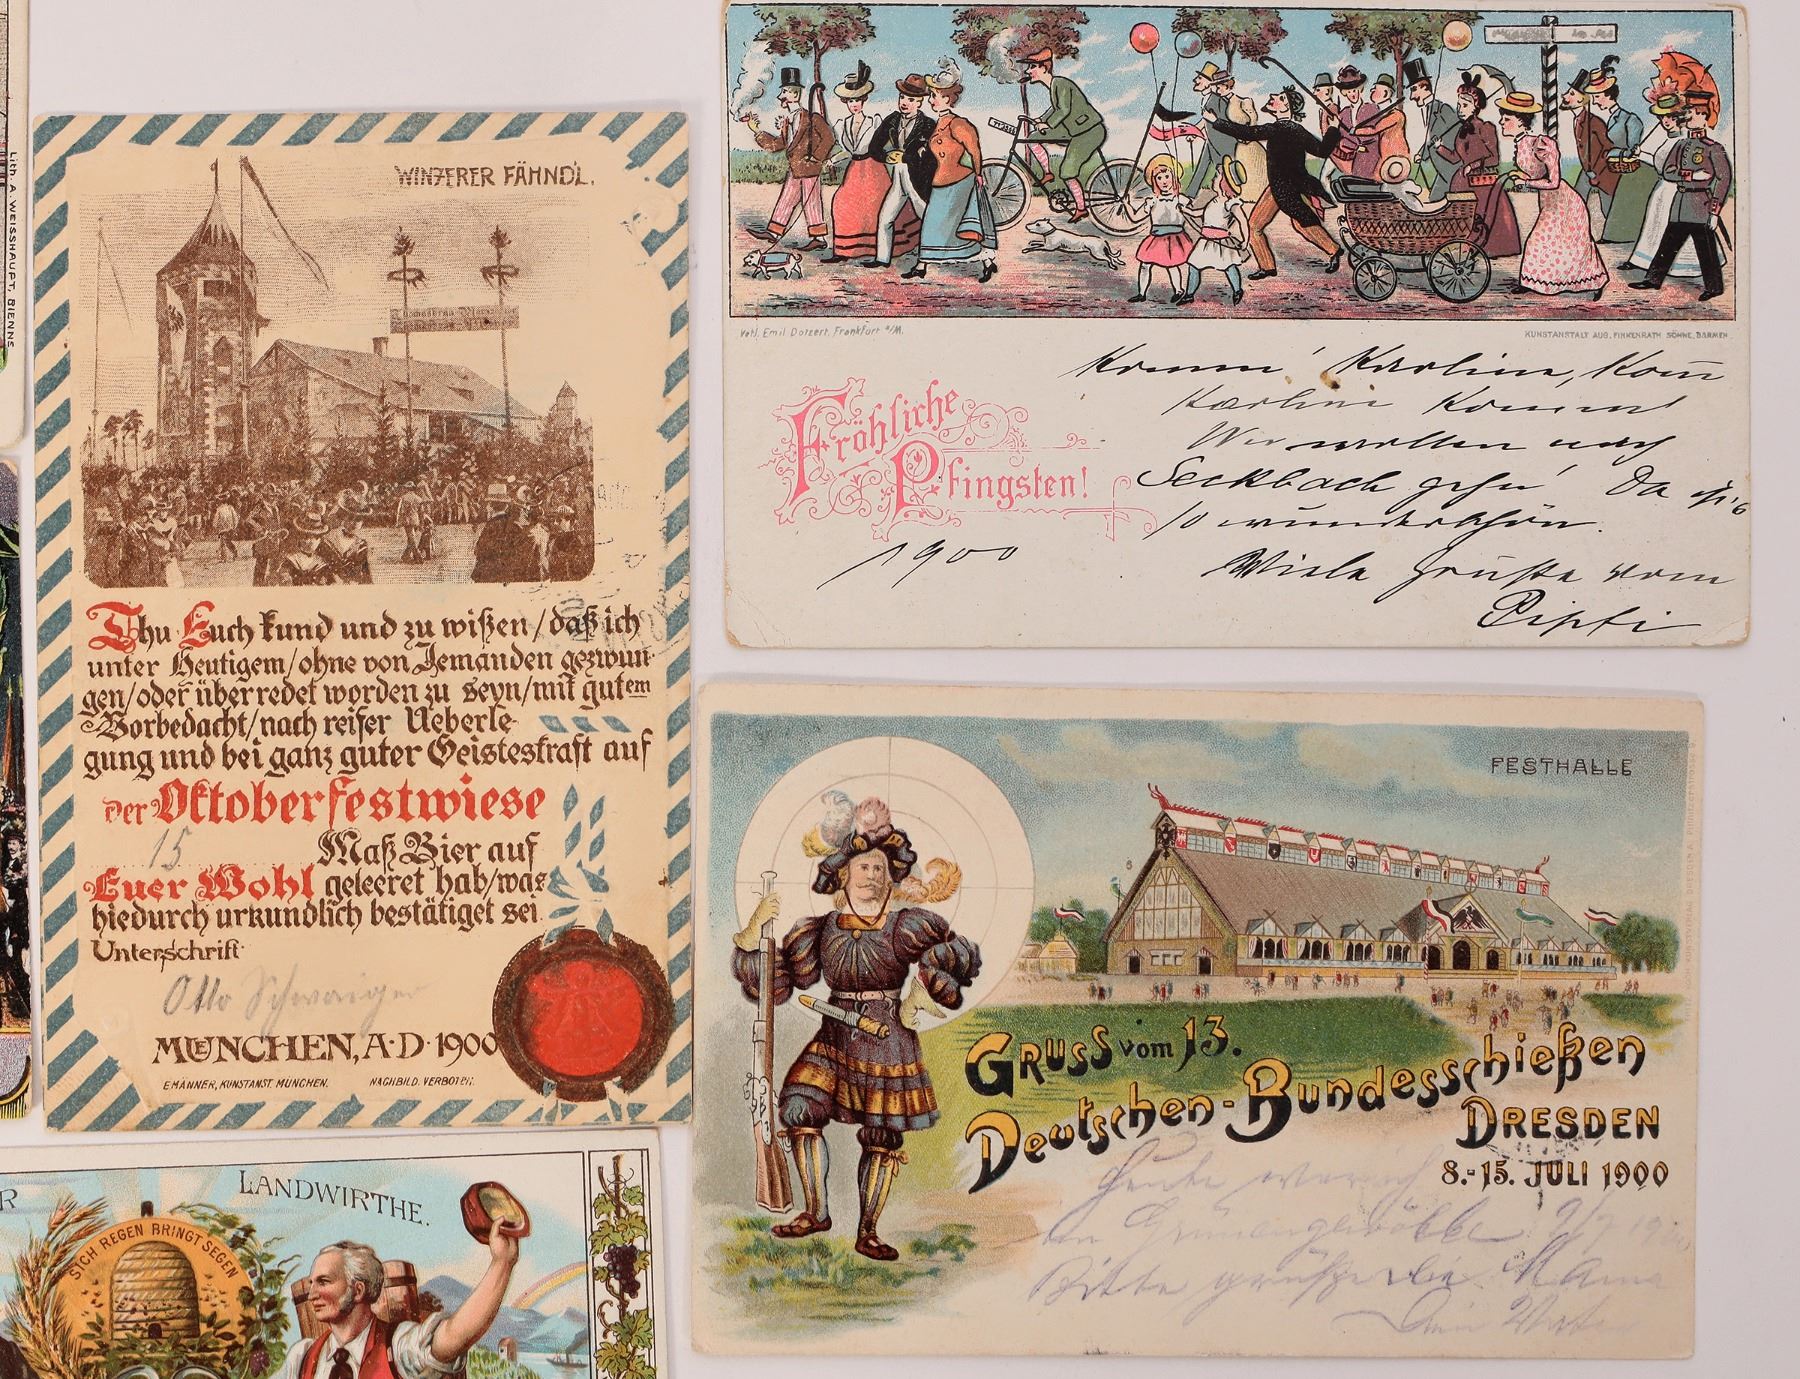 Lith. A. WEISSHAUPT, BIENNE
WINZERER FÄHNDL.
Thomasbräu
Thu Euch kund und zu wißen / daß ich
unter Heutigem / ohne von Jemanden gezwun-
gen / oder überredet worden zu seyn / mit gutem
Vorbedacht / nach reifer Ueberle-
gung und bei ganz guter Geisteskraft auf
der Oktoberfestwiese
15 Maß Bier auf
Euer Wohl geleeret hab / was
hiedurch urkundlich bestätiget sei.
Unterschrift:
Otto Schwaiger
MUENCHEN, A·D·1900
E. MÄNNER, KUNSTANST. MÜNCHEN. NACHBILD. VERBOTEN.
Verl. Emil Dotzert, Frankfurt a/M.
KUNSTANSTALT AUG. FINKENRATH SÖHNE, BARMEN.
Fröhliche
Pfingsten!
Komm' Karline, Komm
Karline Komm
Wir wollen nach
Seckbach gehn' Da ist's
so wunderschön.
1900
Viele Grüße vom
FESTHALLE
GRUSS vom 13.
Deutschen-Bundesschießen
DRESDEN
8.-15. JULI 1900
Heute war ich
im 9/7 19
Bitte grüße die Mama
Dein Vater
R
LANDWIRTHE.
SICH REGEN BRINGT SEGEN